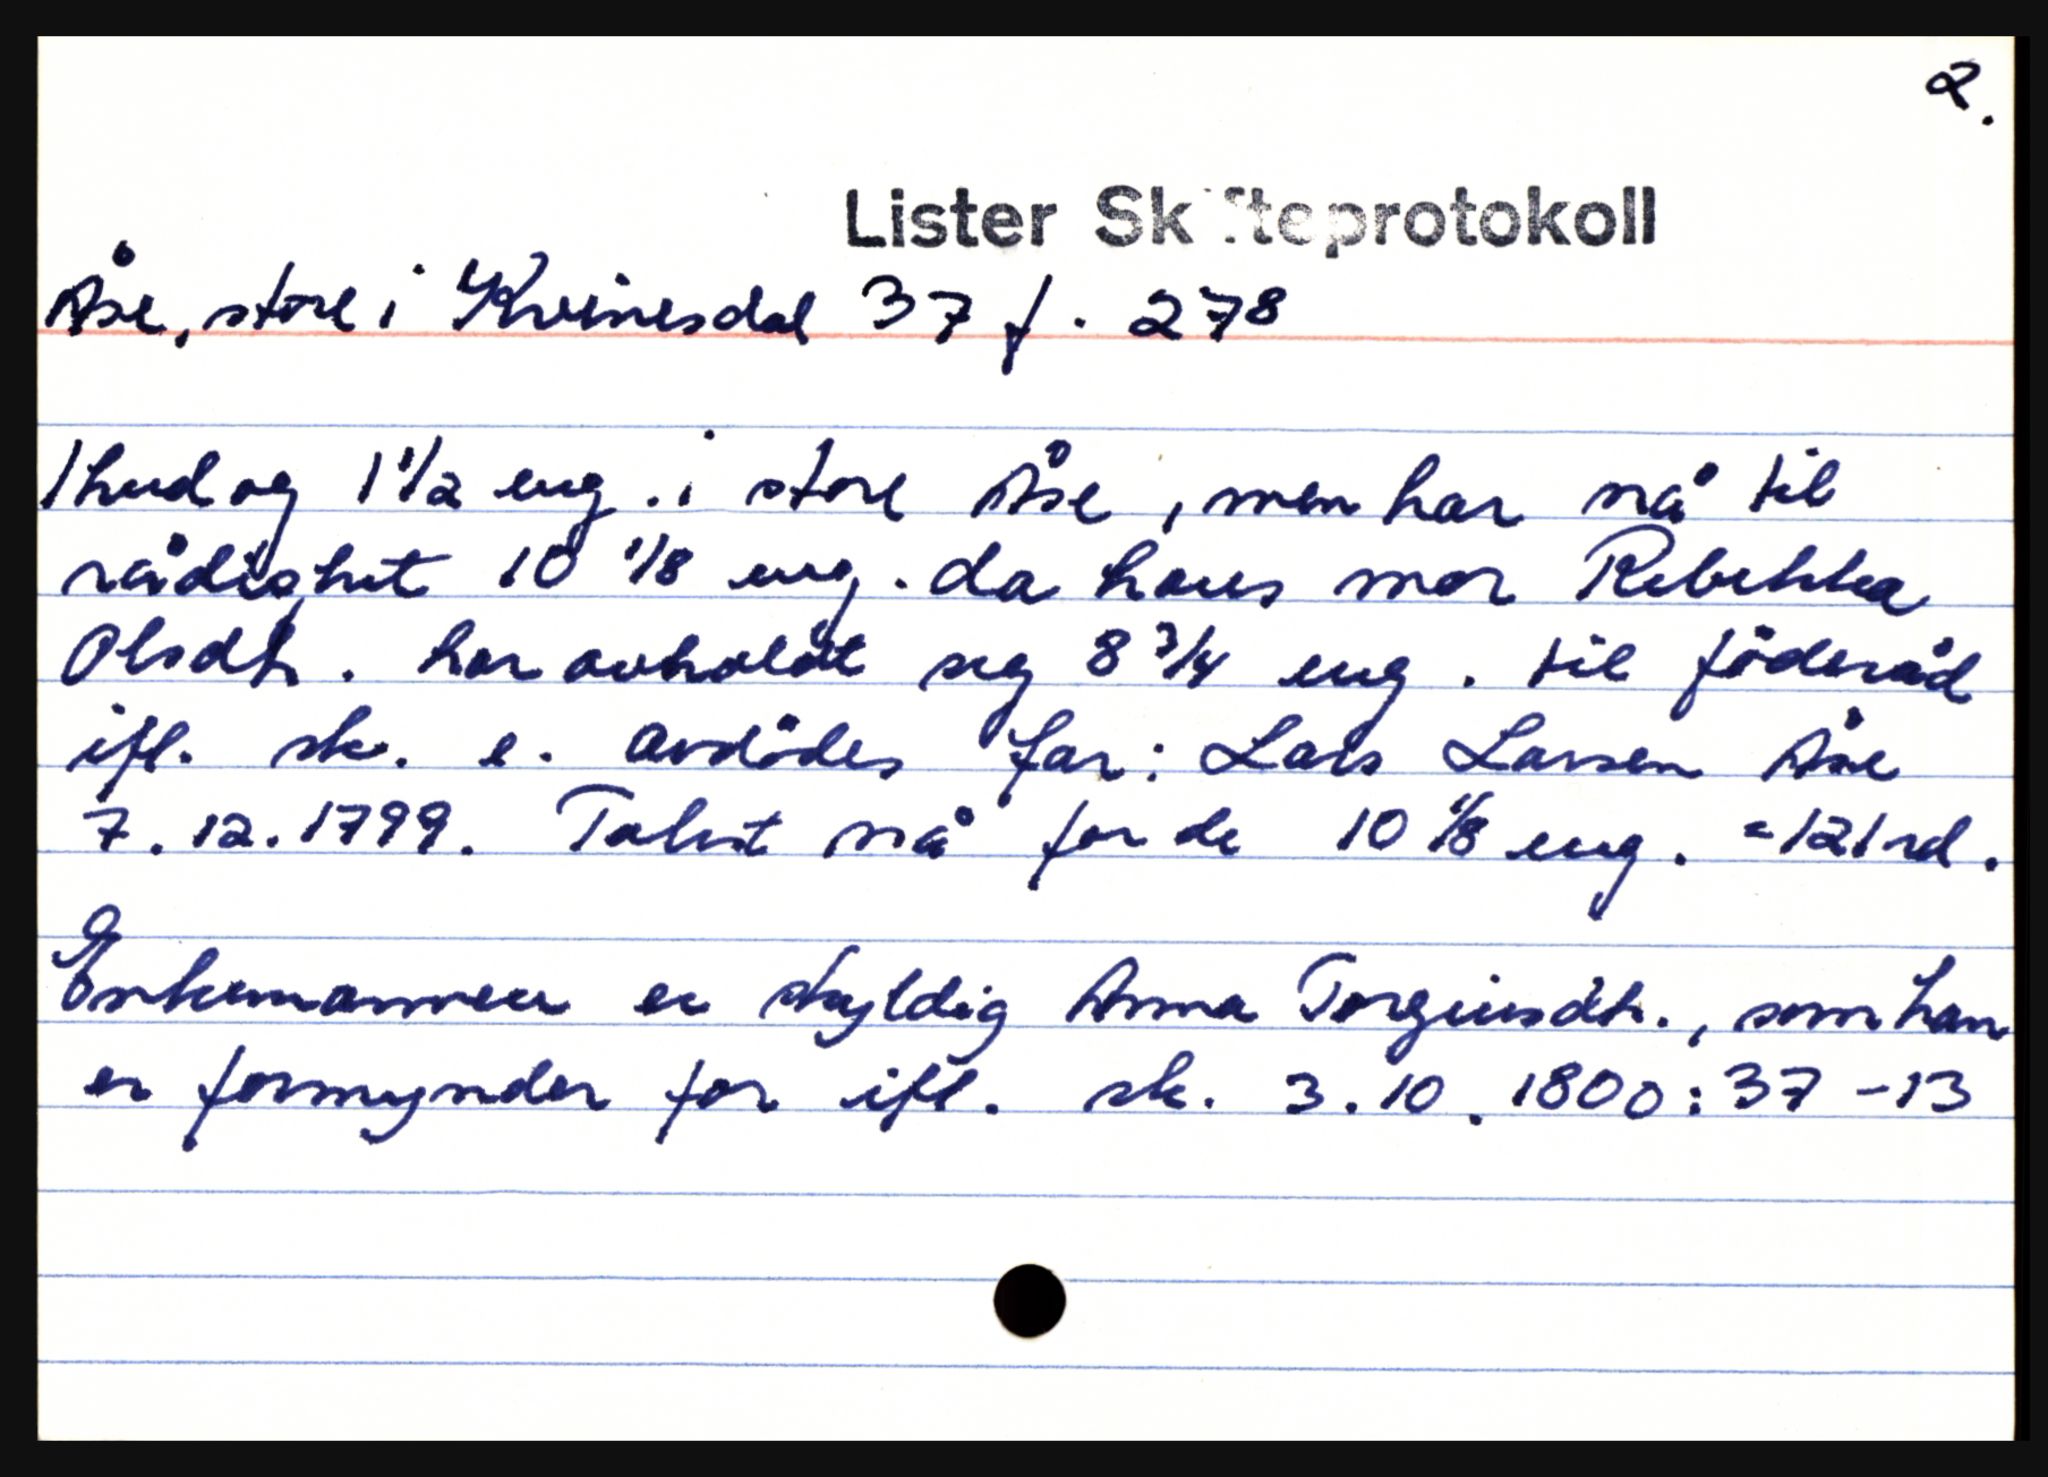 2.
Lister Skifteprotokoll
Åse, store i Kvinesdal 37 f. 278
1 hud og 1 1/2 eng. i store Åse, men har nå til
rådighet 10 1/8 eng. da hans mor Rebekka
Olsdtr. har avholdt seg 8 3/4 eng. til föderåd
ifl. sk. e. avdödes far: Lars Larsen Åse
7.12.1799. Takst nå for de 10 1/8 eng. = 121 rd.
Enkemannen er skyldig Anna Torgiusdtr., som han
er formynder for ifl. sk. 3.10.1800: 37 - 13